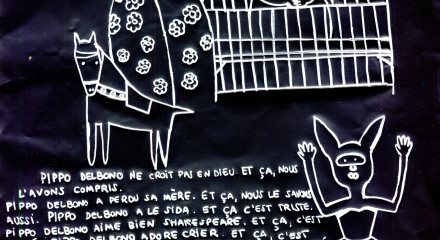 PIPPO DELBONO NE CROIT PAS EN DIEU. ET ÇA, NOUS
L'AVONS COMPRIS.
PIPPO DELBONO A PERDU SA MÈRE. ET ÇA, NOUS LE SAVONS
AUSSI. PIPPO DELBONO A LE SIDA. ET ÇA C'EST TRISTE.
PIPPO DELBONO AIME BIEN SHAKESPEARE. ET ÇA, C'EST
DELBONO ADORE CRIER. ET ÇA, C'EST